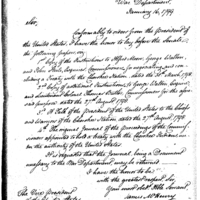 War Department,
January 14, 1799
Sir,
Conformably to orders from the President of
the United States, I have the honor to lay before the Senate
the following papers, viz.
1st Copy of the Instructions to Alfred Moore, George Walton,
and John Steele, Esquires, Commissioners for
Treaty with the Cherokee Nation, dated the 30th March, 1798.
2d Copy of additional Instructions to George Walton, Esquire,
and Lieutenant Colonel Thomas Butler, Commissioners for the afore-
said purposes dated the 27th August 1798.
A Talk of the President of the United States to the Chiefs
and Warriors of the Cherokee Nation, dated the 27th August, 1798.
The original Journal of the proceedings of the Commis-
sioners appointed to hold a treaty with the Cherokee Indians under
the authority of the United States.
It is requested that the Journal, being a Document
necessary to the War Department, may be returned.
I have the honor to be
with the greatest respect, Sir,
Your most obt. Hble. Servant
James McHenry
The Vice President
of the United States